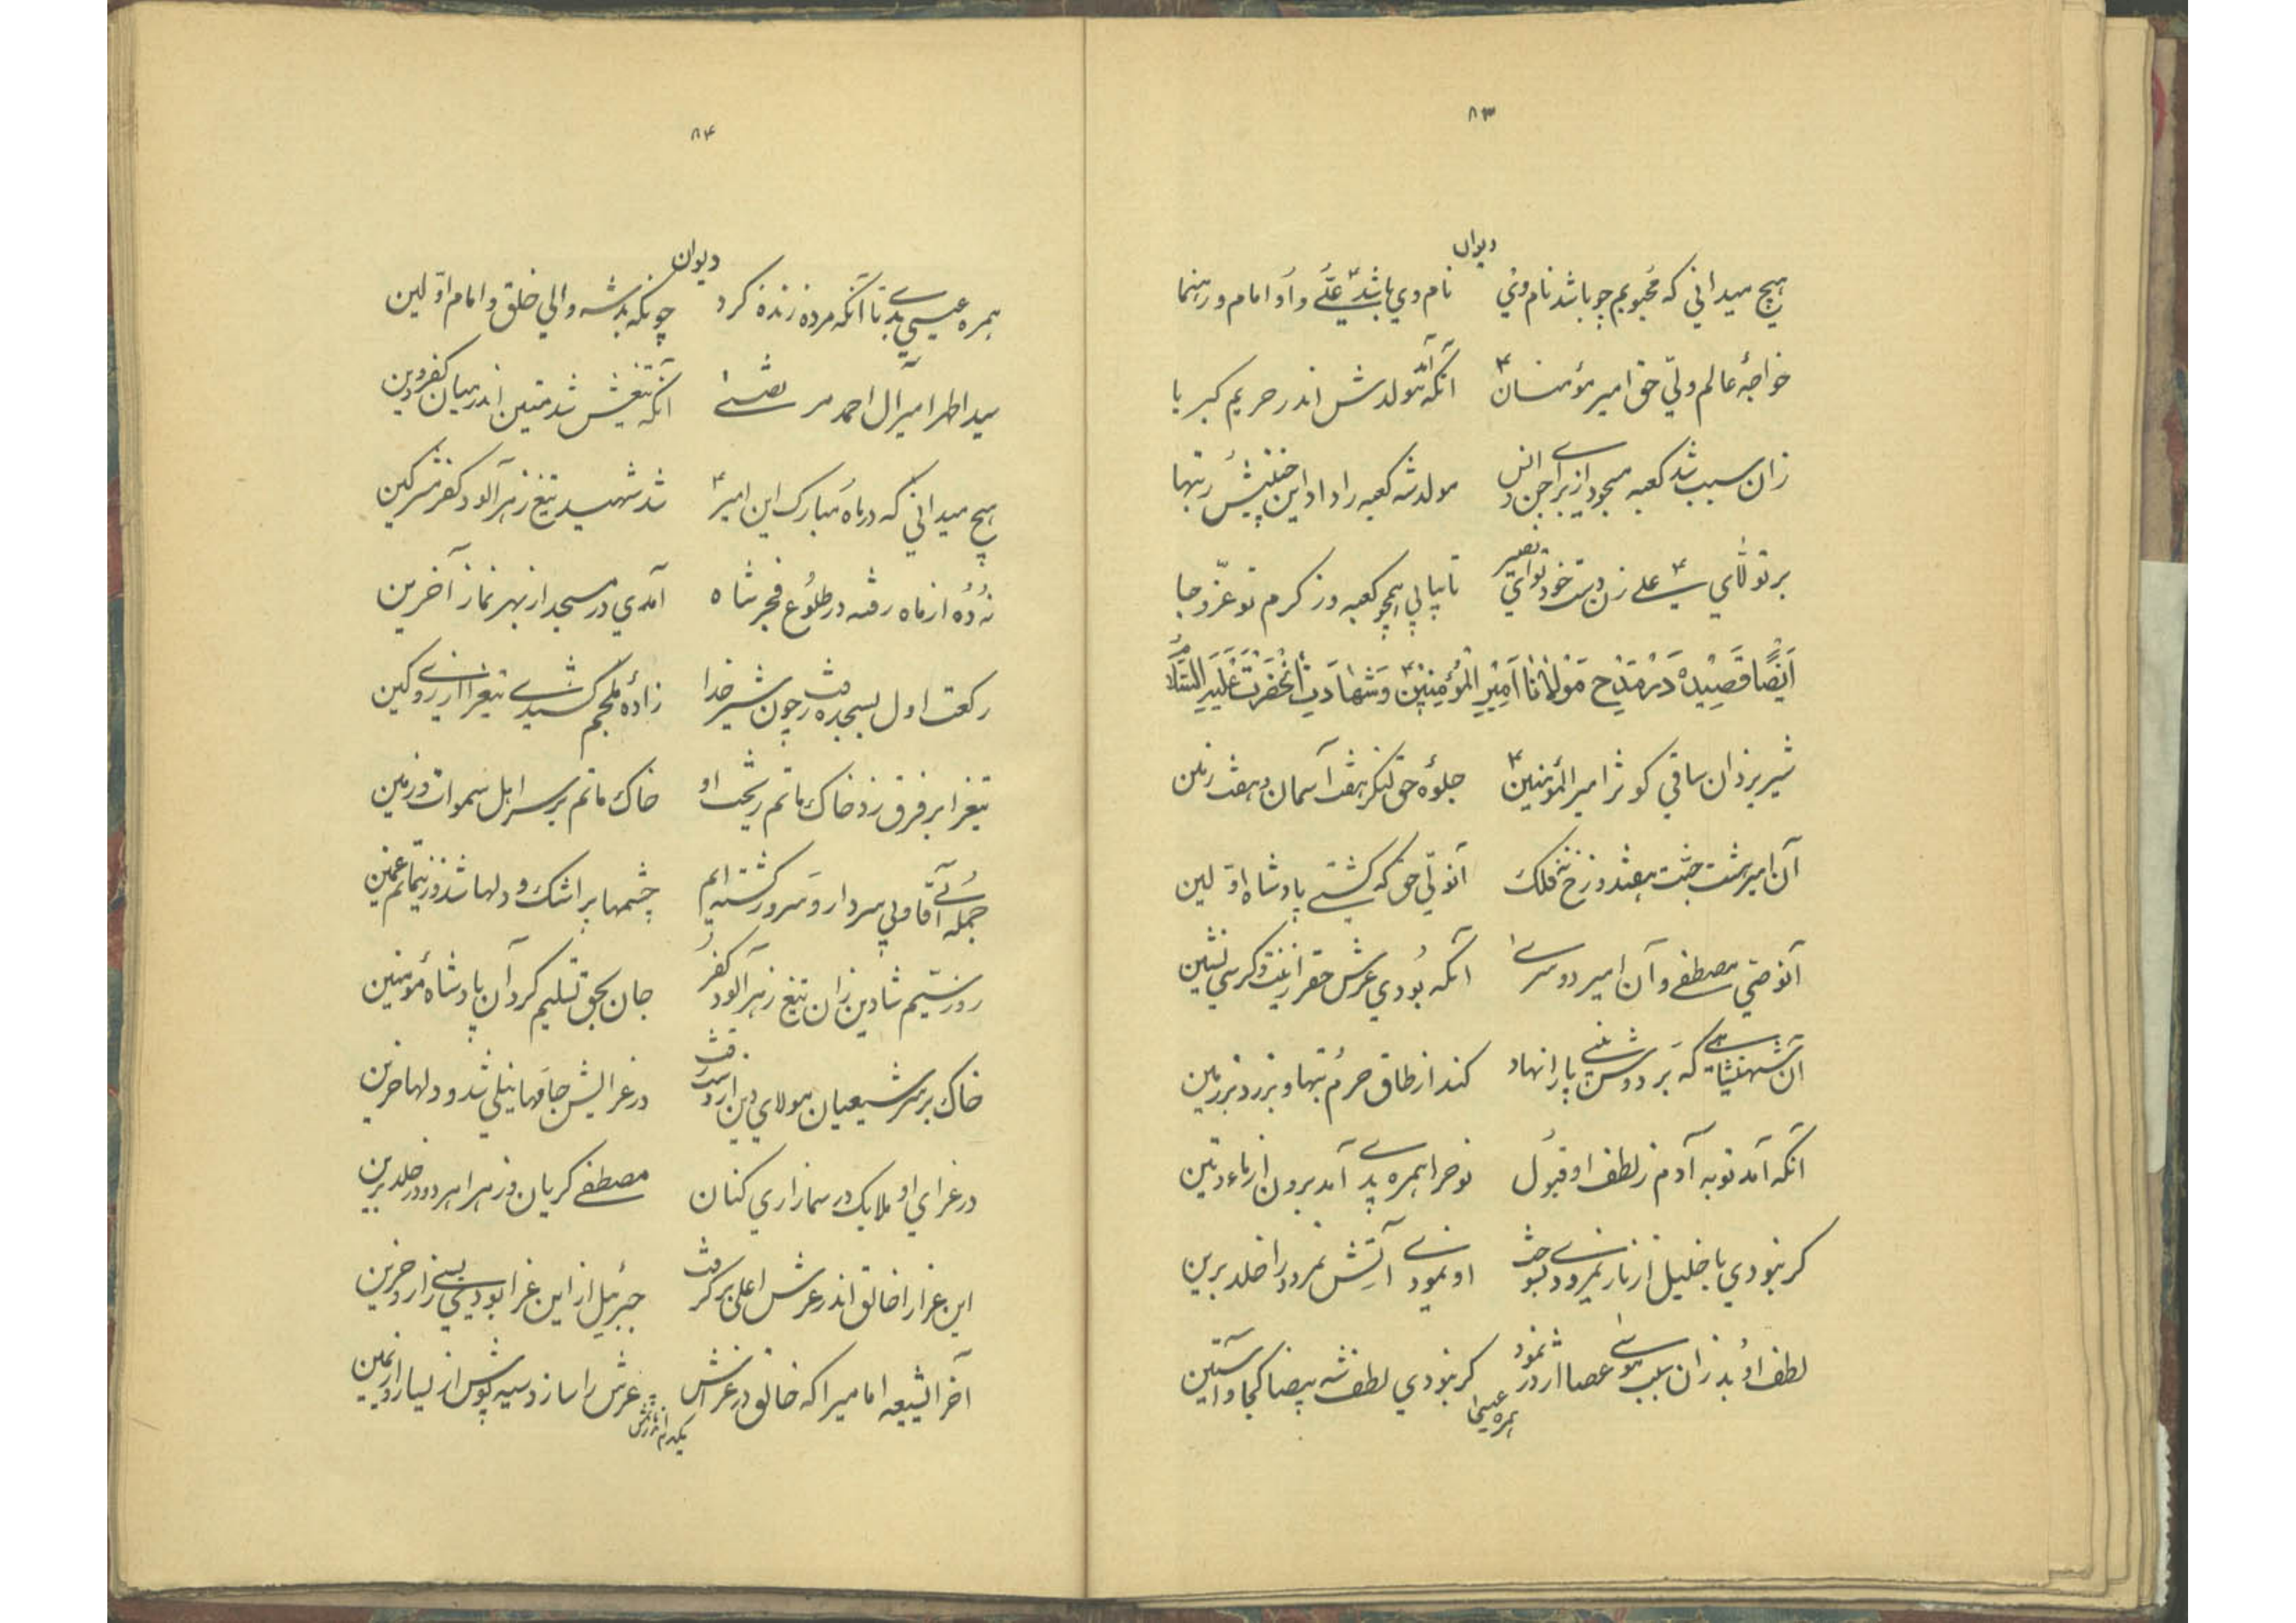 ۸۳
دیوان
هیچ میدانی که محبوبم چو باشد نام وی نام وی باشد علی و او امام و رهنما
خواجهٔ عالم ولی حق امیر مؤمنان آنکه آمد مولدش اندر حریم کبریا
زان سبب شد کعبه مسجود از برای جن و انس مولد شه کعبه را داد این
بر تولای علی زن دست خود تو ای نصیر تا بیابی همچو کعبه در کرم تو عز و جا
اَیضًا قَصیده دَر مَدح مَولانا اَمیرِ المُؤمِنین وَشَهادَت آنحَضرَت عَلَیهِ السَّلام
شیر یزدان ساقی کوثر امیر المؤمنین جلوهٔ حق لنگر هفت آسمان و هفت زمین
آن امیر هشت جنت هفت دوزخ نه فلک آنولی حق که گشتی پادشاه اولین
آنوصی مصطفی و آن امیر دو سرا آنکه بودی عرش حقرا زینت و کرسی نشین
آن شهنشاهی که بر دوش نبی پا را نهاد کند از طاق حرم بتها و بزد بر زمین
آنکه آمد توبه آدم ز لطف او قبول نوحرا همره بد آمد برون از ماء و تین
گر نبودی با خلیل از نار نمرودی بسوخت او نمودی آتش نمرود را خلد برین
لطف او بد زان سبب موسی عصا اژدر نمود گر نبودی لطف شه بیضا کجا و آستین
همره عیسی
۸۴
دیوان
همره عیسی بدی تا آنکه مرده زنده کرد چونکه بد شه والی خلق و امام اولین
سید اطهر امیر آل احمد مرتضی آنکه تیغش شد متین اندر میان کفر و دین
هیچ میدانی که در ماه مبارک این امیر شد شهید تیغ زهر آلود کفر مشرکین
نه ده از ماه رفته در طلوع فجر شاه آمدی در مسجد از بهر نماز آخرین
رکعت اول بسجده رفت چون شیر خدا زادهٔ ملجم کشیدی تیغرا از روی کین
تیغرا بر فرق زد خاک ماتم ریخت او خاک ماتم بر سر اهل سموات و زمین
جمله بی آقا و بی سردار و سرور گشته ایم چشمها پر اشک و دلها شد ز غمین
روز بیستم شاه دین زان تیغ زهر آلود کفر جان بحق تسلیم کرد آن پادشاه مؤمنین
خاک بر سر شیعیان مولای دین از دست رفت در عزایش جامها نیلی شد و دلها حزین
در عزای او ملایک در سما زاری کنان مصطفی گریان و زهرا هر دو در خلد برین
این عزا را خالق اندر عرش اعلی بر گرفت جبرئیل از این عزا بودی بسی زار و حزین
آخر الشیعه امامیرا که خالق در عزاش عرش را سازد سیه پوش از یسار و از یمین